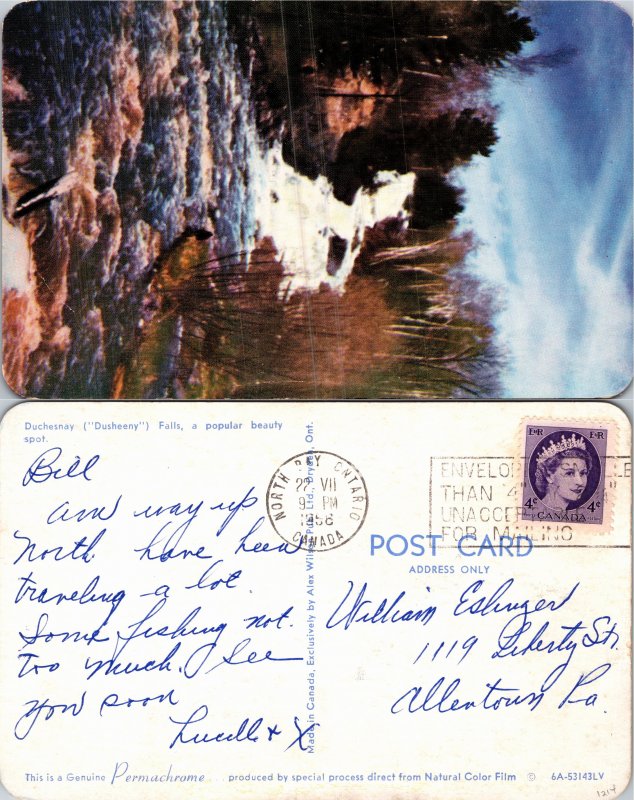 Duchesnay ("Dusheeny") Falls, a popular beauty
spot.
Bill
Am way up
North. have been
traveling a lot.
Some fishing not.
too much. See
you soon
Lucille + X
Made in Canada, Exclusively by Alex Wilson Pub. Ltd., Dryden, Ont.
NORTH BAY ONTARIO
22 VII
9 PM
1958
CANADA
ENVELOP
THAN 4"
UNACCEP
FOR MAILING
E II R E II R
4c 4c
CANADA
POST CARD
ADDRESS ONLY
William Eslinger
1119 Liberty St.
Allentown Pa.
This is a Genuine Permachrome produced by special process direct from Natural Color Film © 6A-53143LV
1214